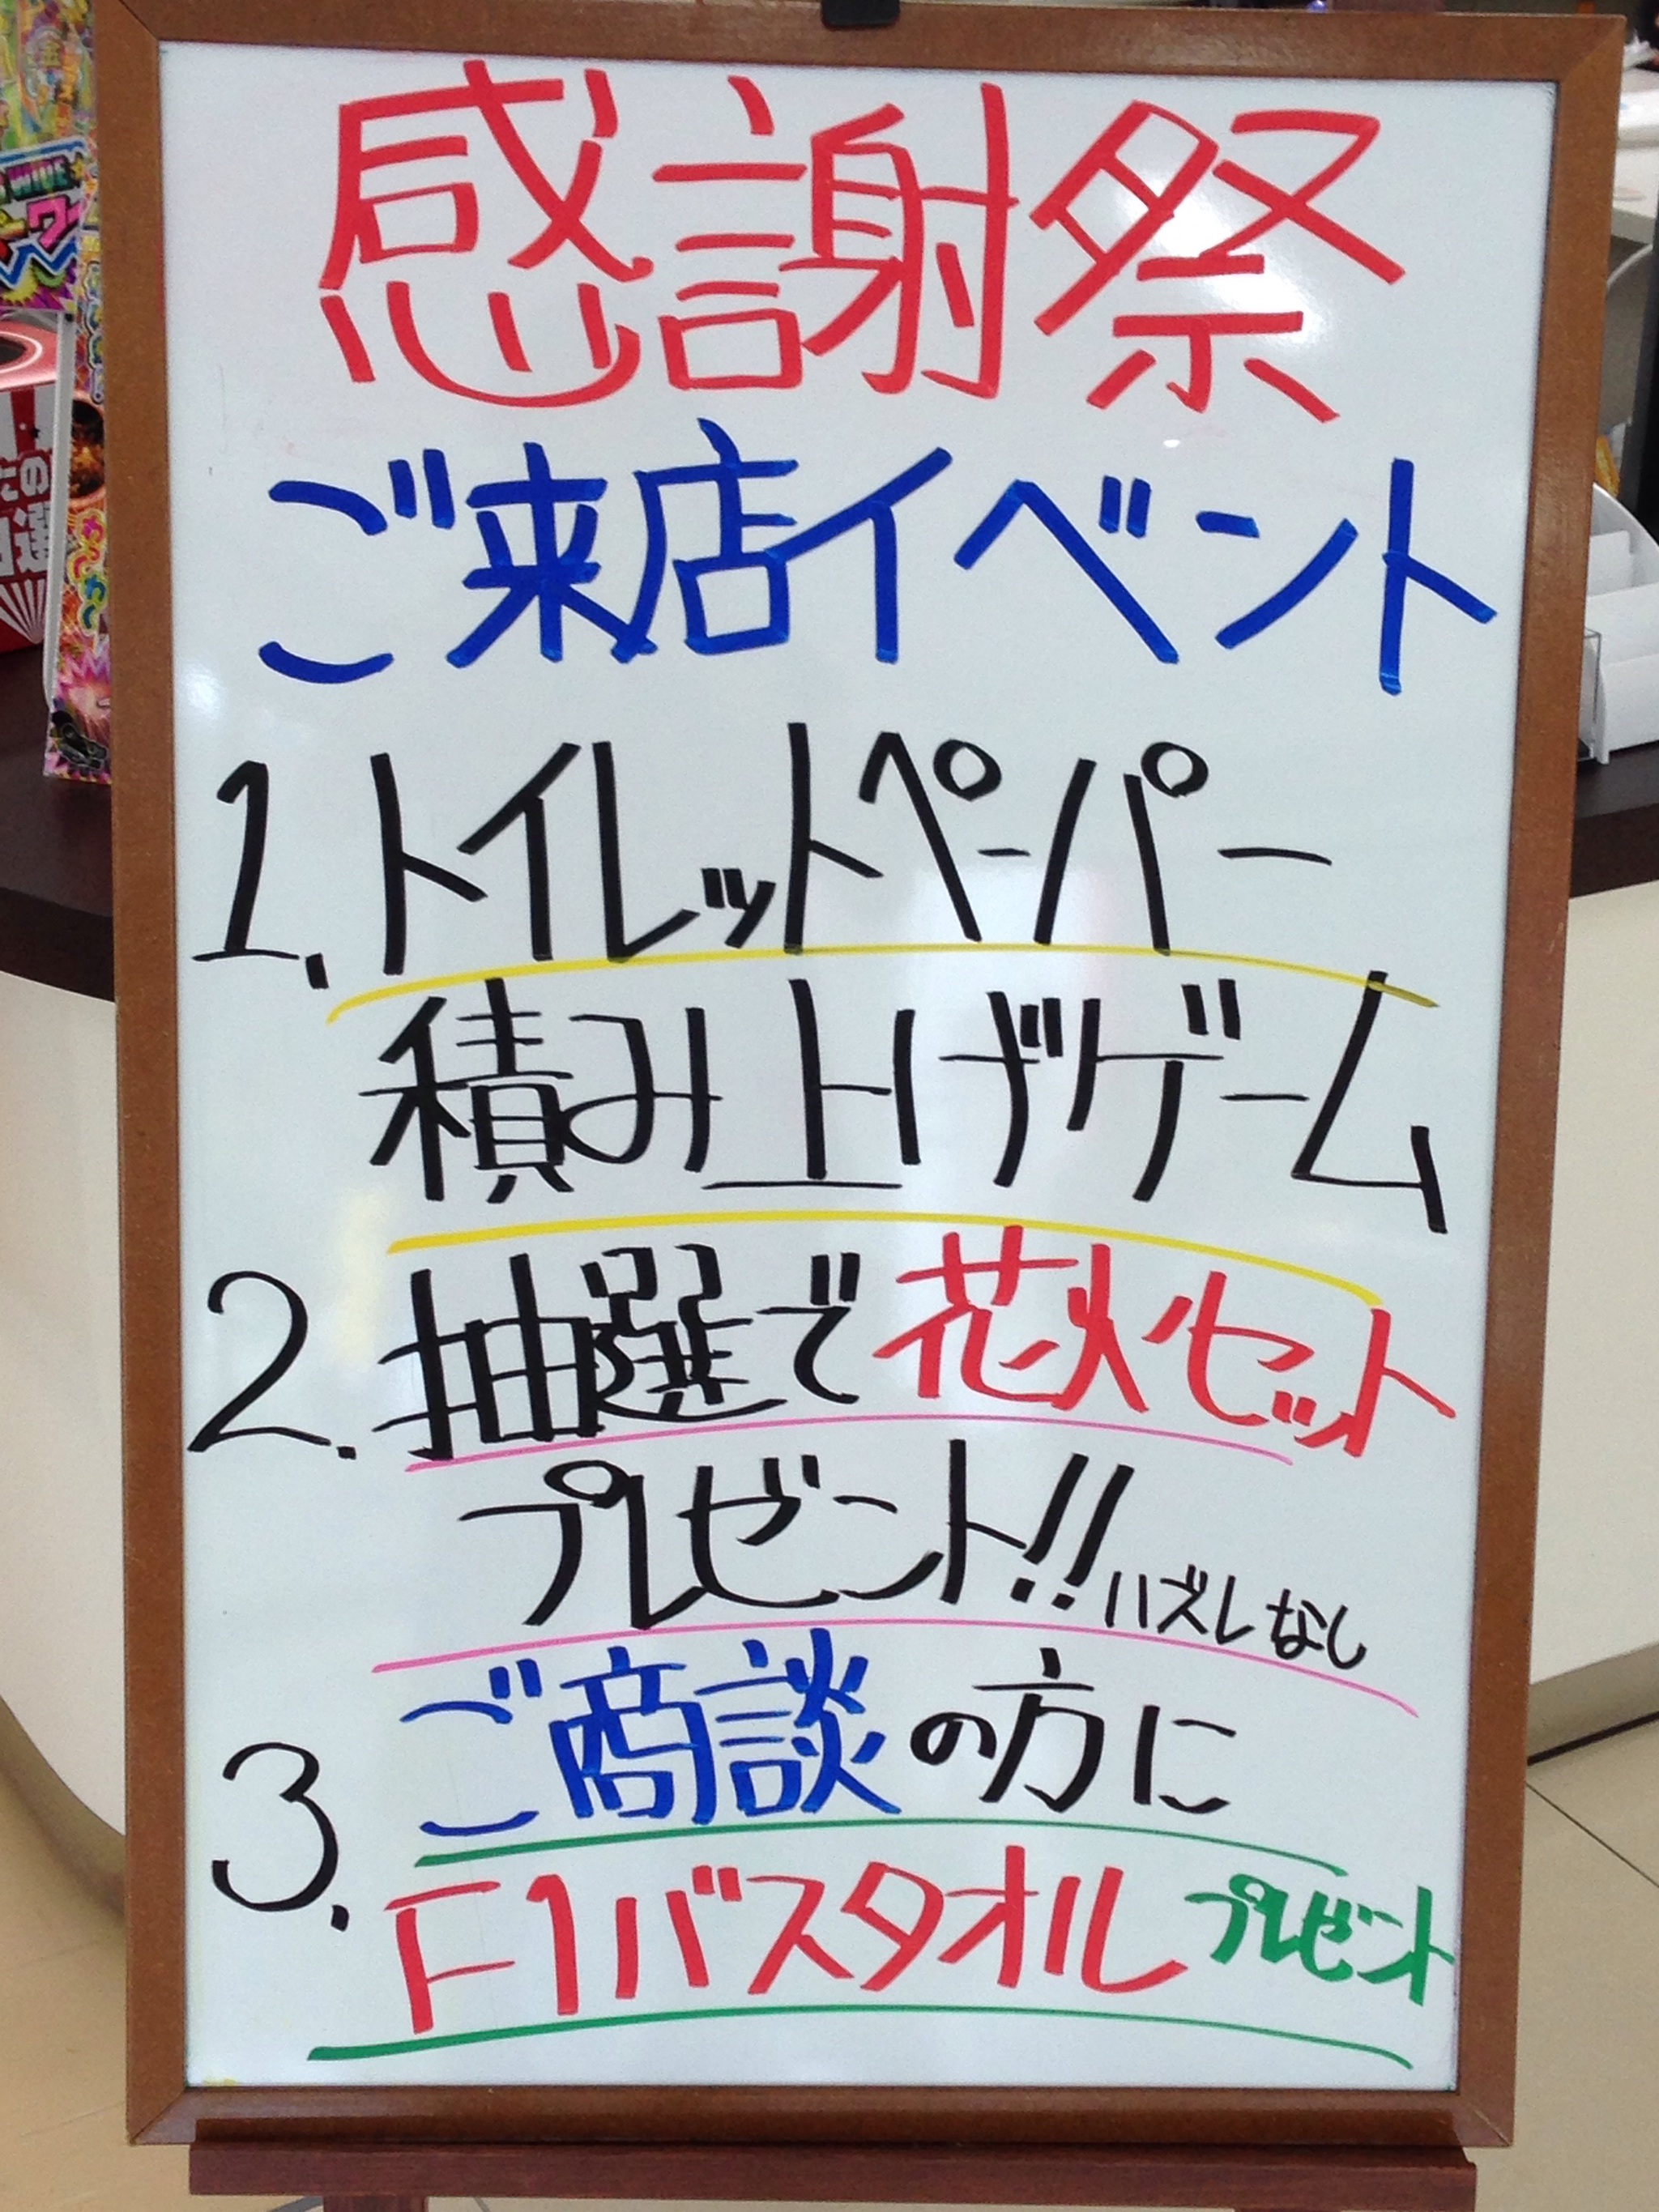 感謝祭
ご来店イベント
1.トイレットペーパー
積み上げゲーム
2.抽選で花火セット
プレゼント!!ハズレなし
3.ご商談の方に
F1バスタオルプレゼント